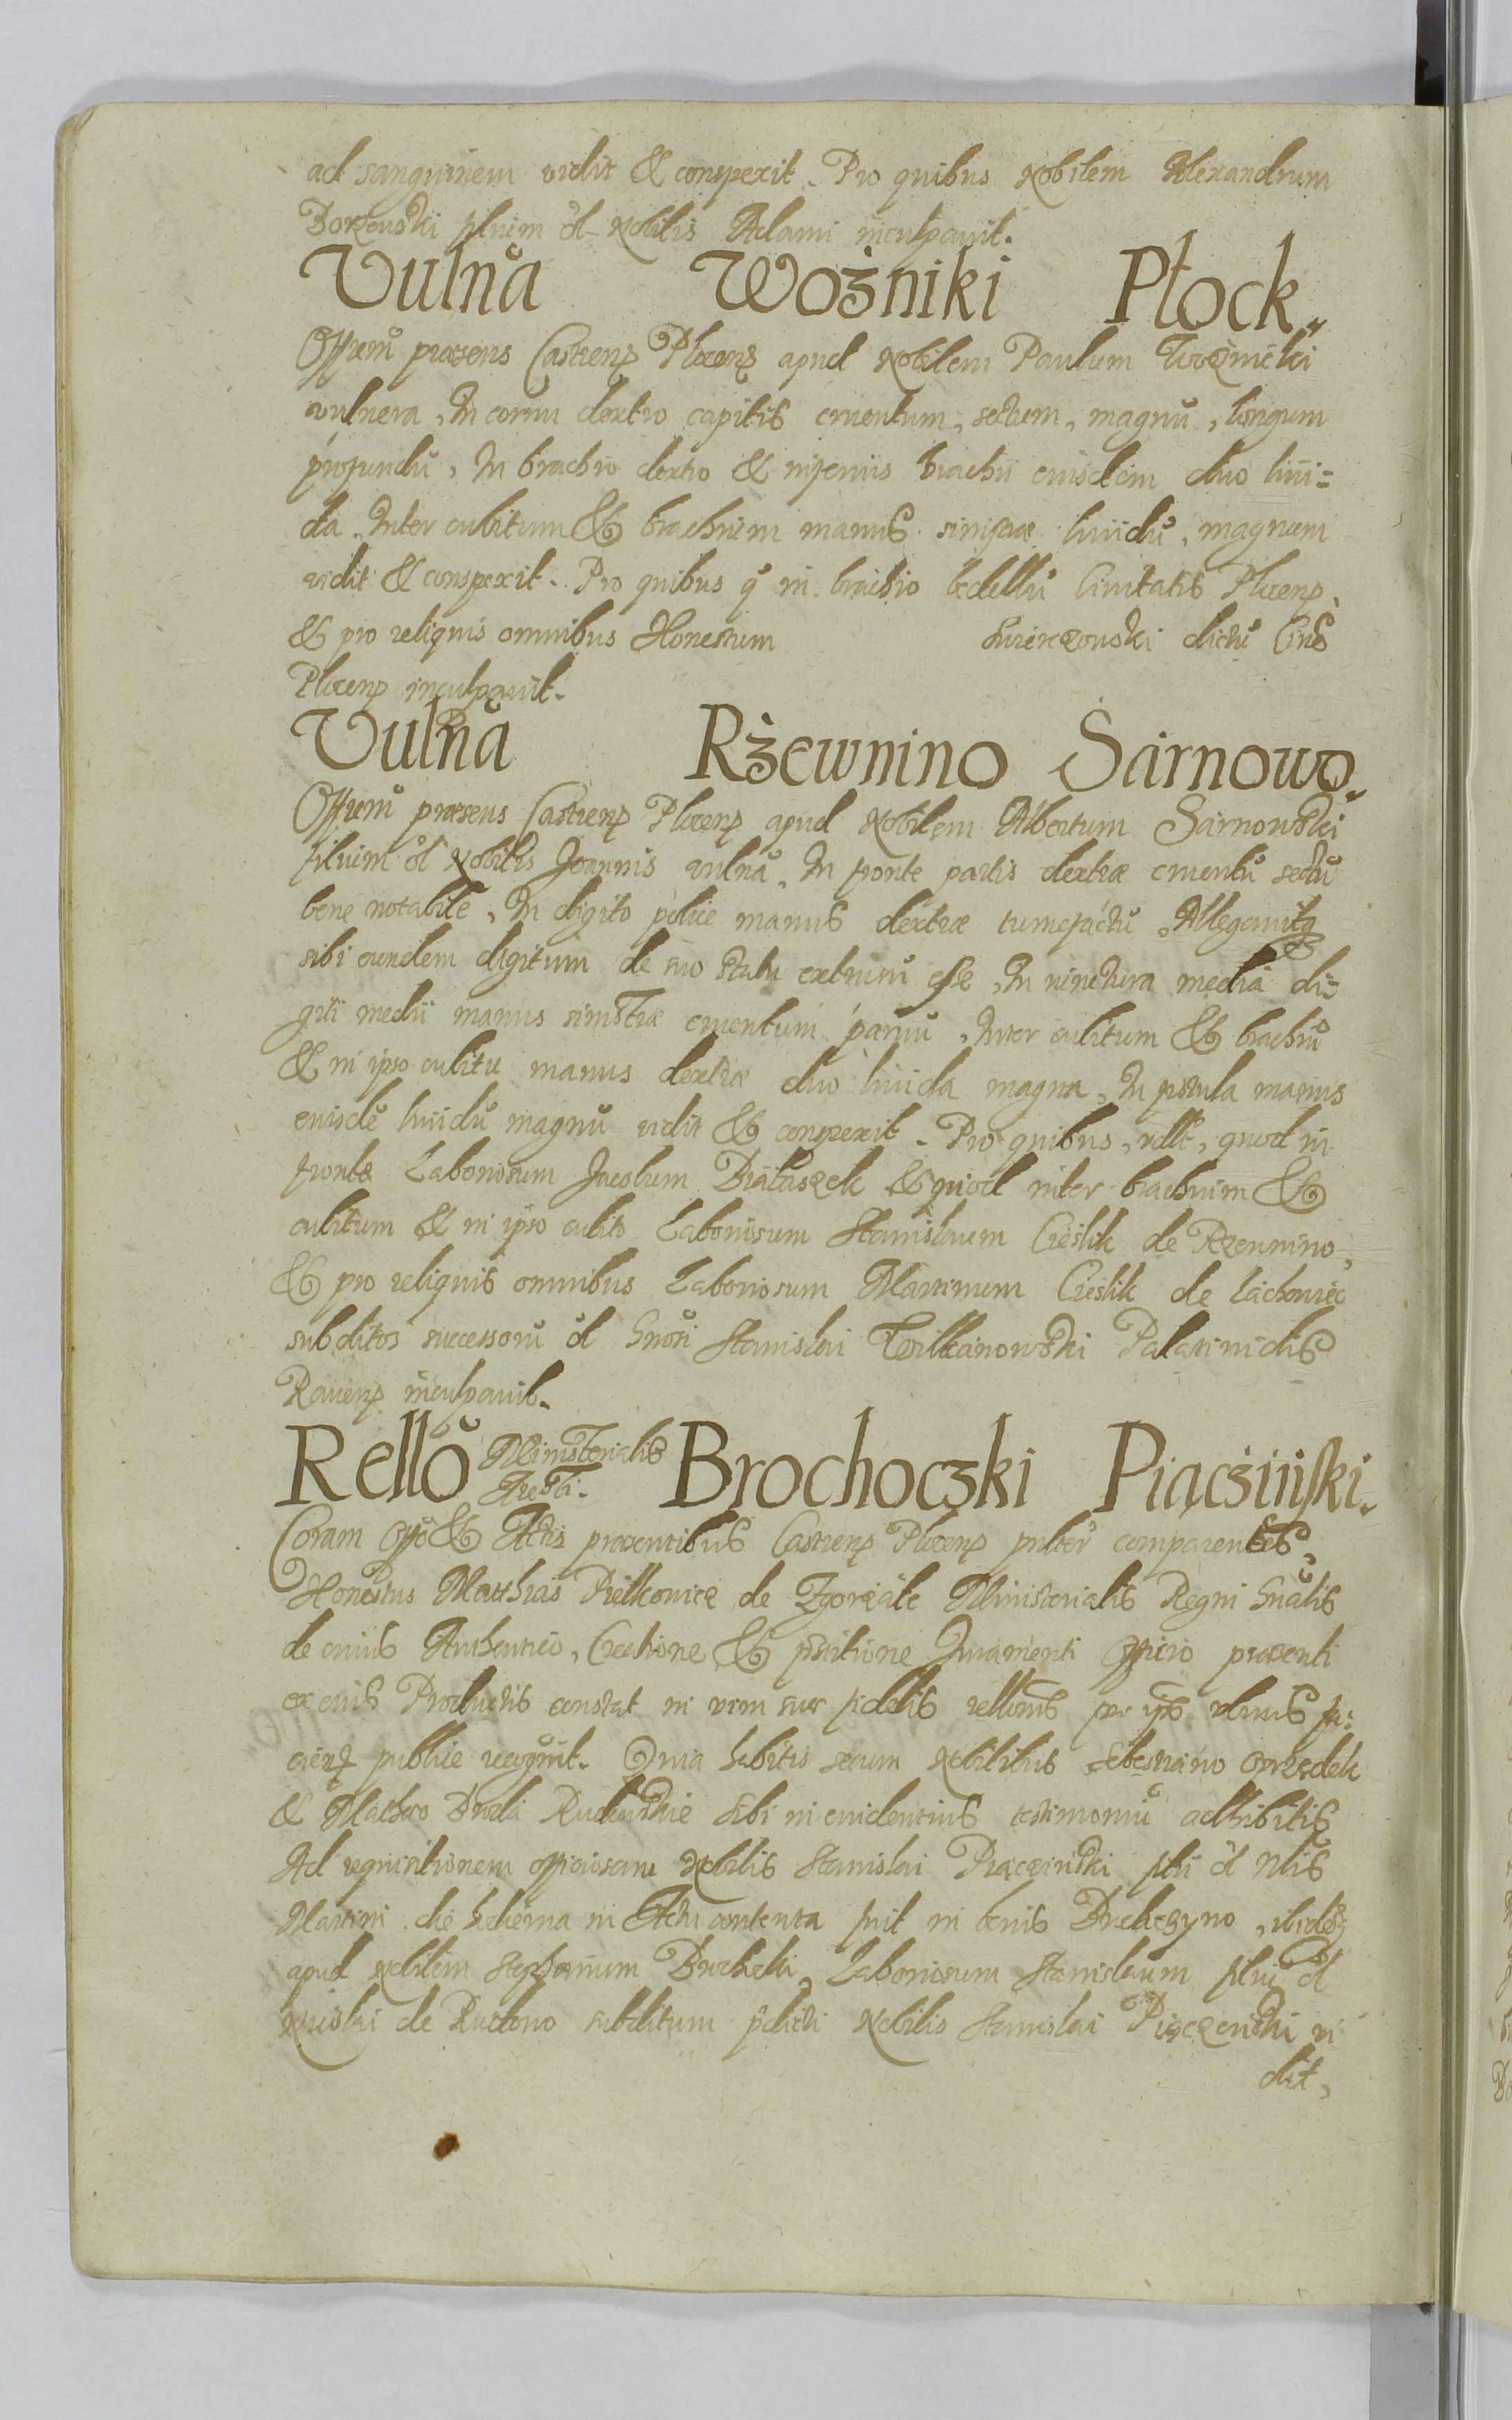 ad sanguinem vidit & conspexit. Pro quibus Nobilem Alexandrum
Borzewski filium ol Nobilis Adami inculpavit.
Vulna Woźniki Płock.
Offium praesens Castrens Plocens apud Nobilem Paulum Woznicki
vulnera, In cornu dextro capitis cruentum, sectum, magnu, longum
profundu, In brachio dextro & inferius brachii eiusdem duo livi=
da, Inter cubitum & brachium manus sinistrae lividu, magnum
vidit & conspexit. Pro quibus q in brachio bedellu Civitatis Plocens,
& pro reliquis omnibus Honestum Swierczowski dictu Civ
Plocens inculpavit.
Vulna Rżewnino Sarnowo.
Offium praesens Castrens Plocens apud Nobilem Albertum Sarnowski
filium ol Nobilis Joannis vulna, In fronte partis dextrae cruentu sectu
bene notabile, In digito police manus dextrae tumefactu, Allegavitq
sibi eundem digitum de suo statu extrusu esse, In iunctura media di=
giti medii manus sinistrae cruentum parvu, Inter cubitum & brachiu
& in ipso cubitu manus dextrae duo livida magna, In pistula manus
eiusde lividu magnu vidit & conspexit. Pro quibus, vdlt, quod in
fronte Laboriosum Jacobum Białaszek & quod inter brachium &
cubitum & in ipso cubito Laboriosum Stanislaum Cieslik de Rzewnino,
& pro reliquis omnibus Laboriosum Martinum Cieslik de Lachowiec
subditos successoru ol Gnosi Stanislai Wilkanowski Palatinidis
Ravens inculpavit.
Rello Ministerialis Aresti. Brochoczki Piącżiński.
Coram Offo & Actis praesentibus Castrens Plocens psnlter comparentes,
Honestus Matthias Pielkowicz de Zgorzałe Ministerialis Regni Gnalis
de cuius Authentico, Creatione & pstitione Juramenti Officio praesenti
ex eius Productis constat in vim sue fidelis rellonis per ips ulrius fa=
ciens publice recognit. Quia habitis secum Nobilibus Sebestiano Orzędek
& Matheo Budz Rudowskie sibi in evidentius testimoniu adhibitis
Ad requisitionem officiosam Nobilis Stanislai Piączinski filii ol Nlis
Martini die hesterna in Actu contenta fuit in bonis Brochoczyno, ibidez
apud Nobilem Stephanum Brochocki, Laboriosum Stanislaum filiu ol
Nicolai de Rudowo subditum pdicti Nobilis Stanislai Piączenski vi
dit,